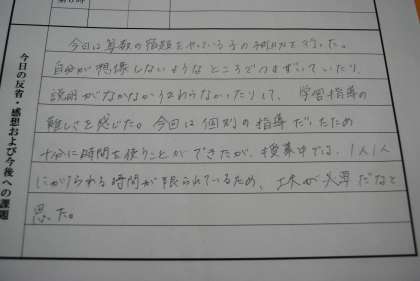 今日の反省・感想および今後への課題
今日は算数の宿題をやっている子の補助を行った。
自分が想像しないようなところでつまずいていたり、
説明がなかなかうまく伝わらなかったりして、学習指導の
難しさを感じた。今回は個別の指導だったため
十分に時間を使うことができたが、授業中では、1人1人
にかけられる時間が限られているため、工夫が必要だなと
思った。